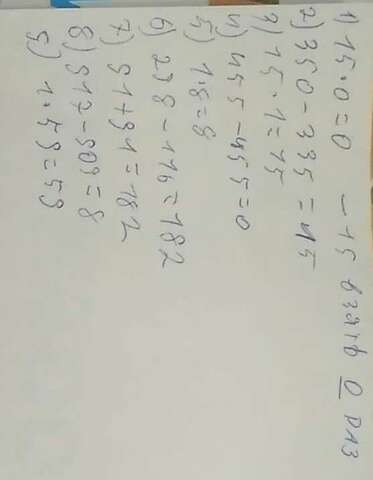 1) 15·0=0 — 15 взять 0 раз
2) 350-335=15
3) 15·1=15
4) 455-455=0
5) 1·8=8
6) 298-116=182
7) 91+91=182
8) 917-909=8
9) 1·59=59